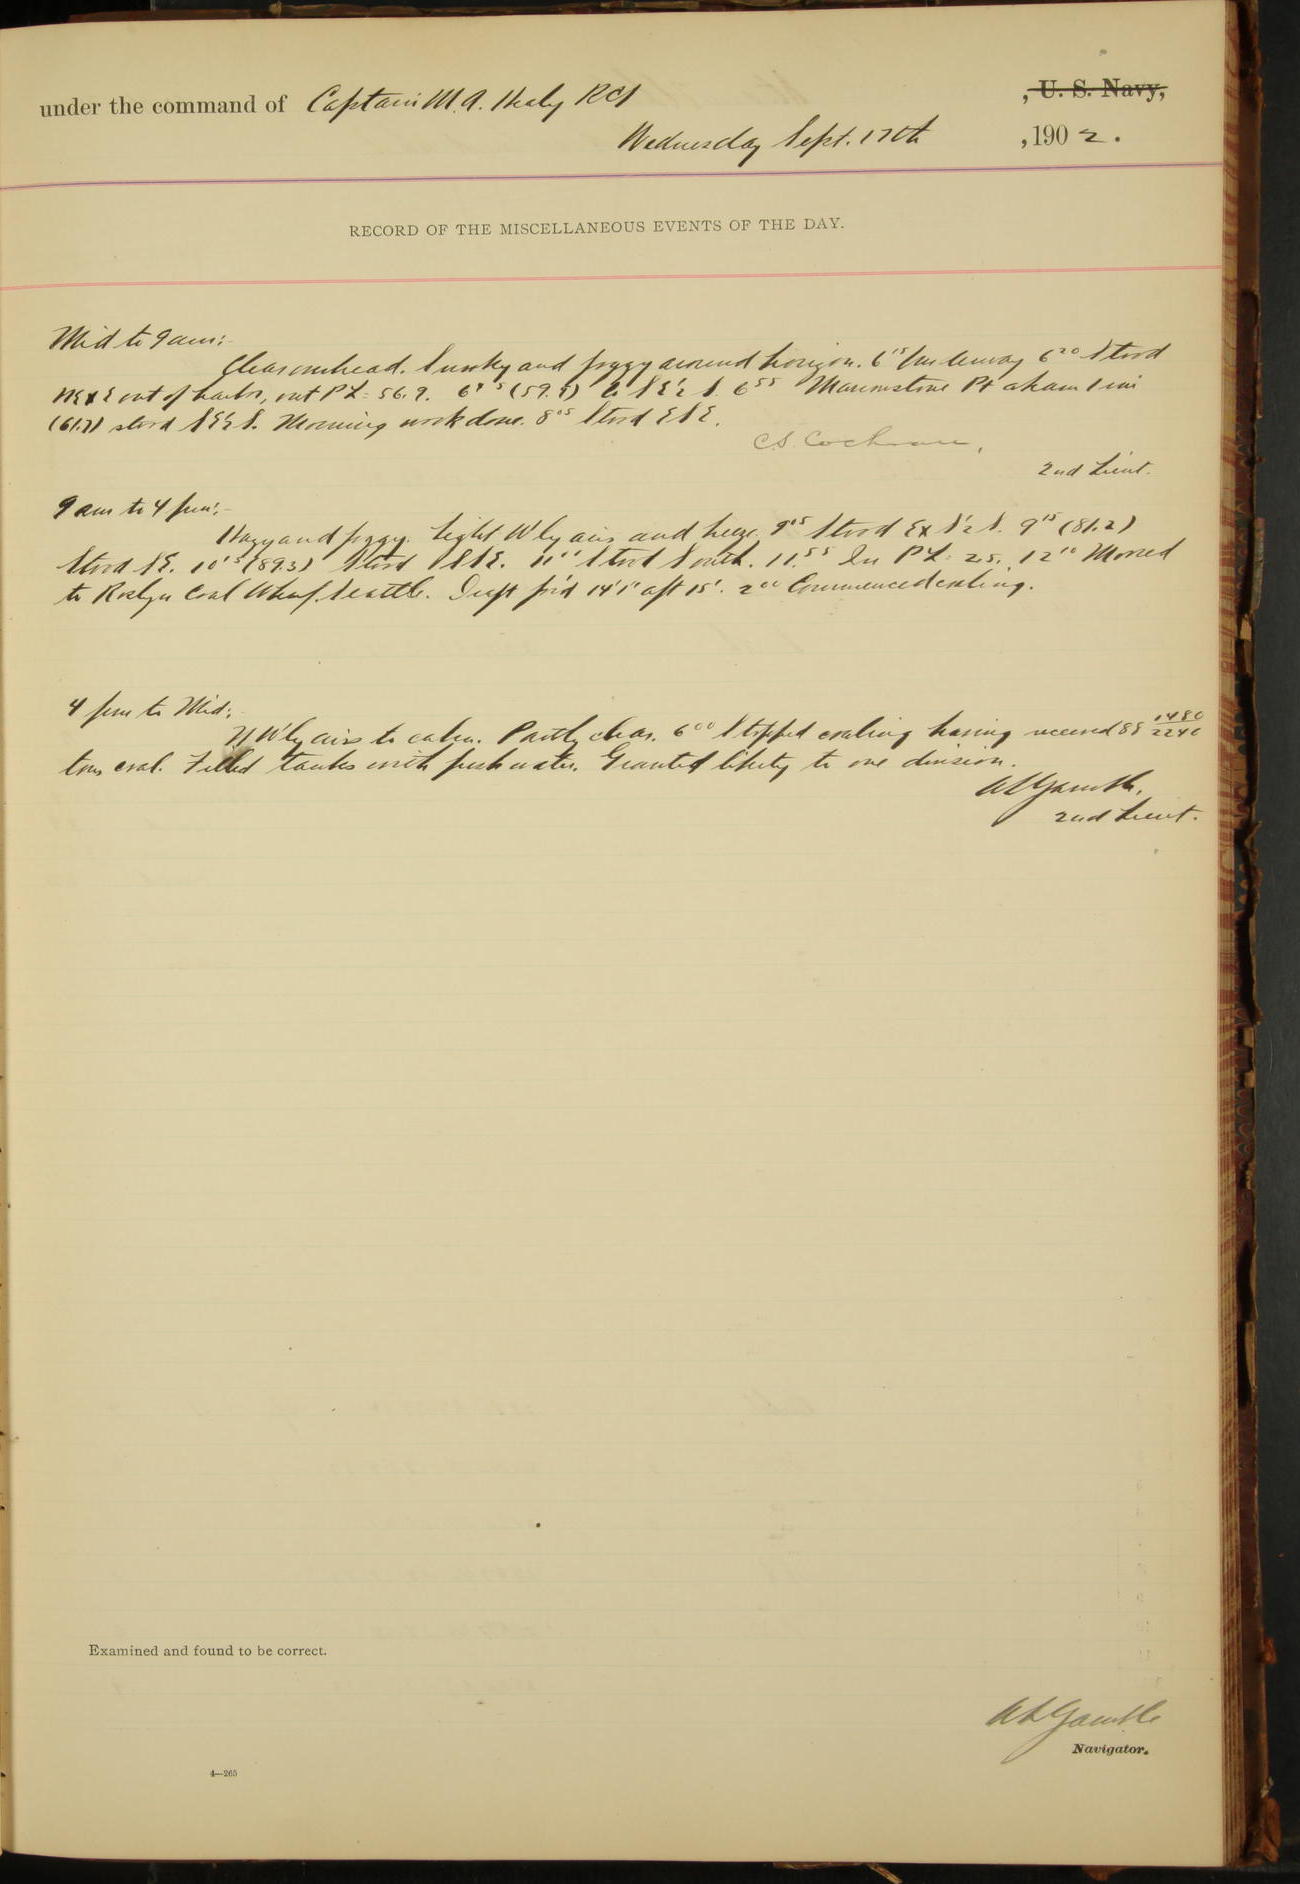 under the command of Captain M. A. Healy RCS , U. S. Navy,
Wednesday Sept. 17th , 190 2.
RECORD OF THE MISCELLANEOUS EVENTS OF THE DAY.
Mid to 9 am:-
Clear overhead. Smoky and foggy around horizon. 6 15 Underway 6 20 Stood
NExE out of harbor, out P L= 56.9. (59.9) to SE½S. 6 55 Marrowstone Pt abeam 1 mi
(61.7) stood SE½S. Morning work done. 8 05 Stood ESE.
C.S. Cochran,
2nd Lieut.
9 am to 4 pm:-
Hazy and foggy. Light W'ly airs and breeze. 9 05 Stood ExS½S. 9 15 (81.2)
Stood SE. 10 15 (89.3) Stood SSE. Stood South. 11.55 In P L= 25. 12 10 Moored
to Roslyn Coal Wharf, Seattle. Draft for'd 14'1" aft 15'. 2 00 Commenced coaling.
4 pm to Mid:-
N W'ly airs to calm. Partly clear. 6 00 Stopped coaling having received 88 1480/2240
tons coal. Filled tanks with fresh water. Granted liberty to one division.
A L Gamble,
2nd Lieut.
Examined and found to be correct.
A L Gamble
Navigator.
4—265